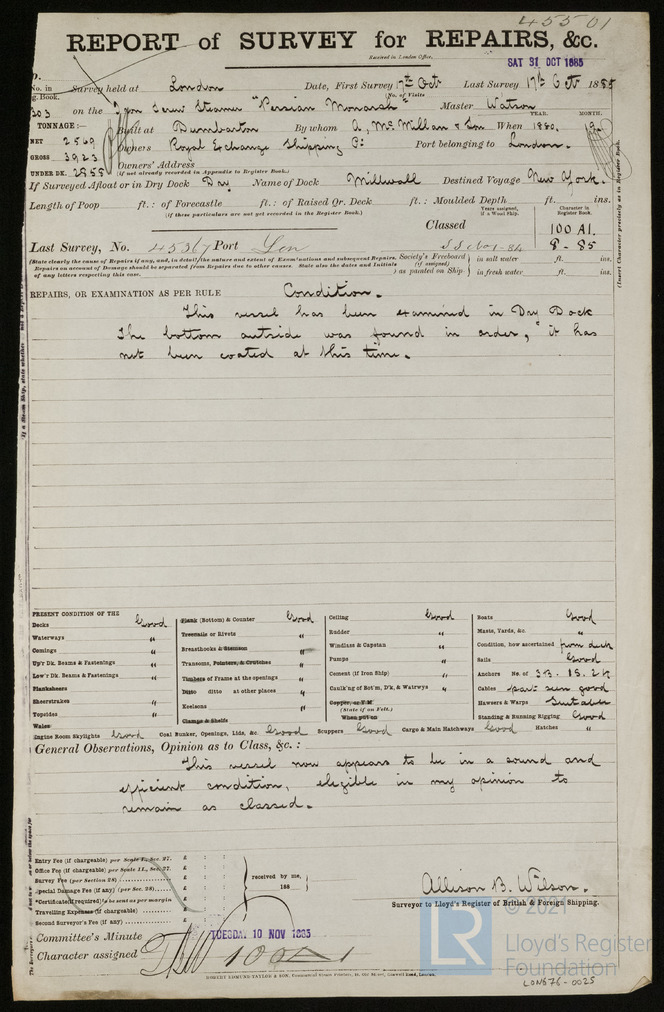 45501
REPORT of SURVEY for REPAIRS, &c.
Received in London Office,
SAT 31 OCT 1885
No. in Survey held at London Date, First Survey 17th Oct Last Survey 17th Oct 1885
g. Book. No. of Visits
303 on the Iron Screw Steamer "Persian Monarch" Master Watson
TONNAGE:— YEAR. MONTH.
Built at Dumbarton By whom A. McMillan & Son When 1880,
NET 2569
Owners Royal Exchange Shipping Co: Port belonging to London.
GROSS 3923
Owners' Address
UNDER DK. 2855 (if not already recorded in Appendix to Register Book.)
If Surveyed Afloat or in Dry Dock Dry Name of Dock Millwall Destined Voyage New York.
Length of Poop ft.: of Forecastle ft.: of Raised Qr. Deck ft.: Moulded Depth ft. ins.
(If these particulars are not yet recorded in the Register Book.)
Years assigned, if a Wood Ship. Character in Register Book.
Classed 100 A1.
Last Survey, No. 45367 Port Lon 8 - 85
(State clearly the cause of Repairs if any, and, in detail, the nature and extent of Examinations and subsequent Repairs. Society's Freeboard in salt water ft. ins.
Repairs on account of Damage should be separated from Repairs due to other causes. State also the dates and Initials (if assigned)
of any letters respecting this case. as painted on Ship in fresh water ft. ins.
(Insert Character precisely as in Register Book.
REPAIRS, OR EXAMINATION AS PER RULE Condition.
This vessel has been examined in Dry Dock
The bottom outside was found in order, it has
not been coated at this time.
PRESENT CONDITION OF THE
Decks Good Plank (Bottom) & Counter Good Ceiling Good Boats Good
Waterways " Treenails or Rivets " Rudder " Masts, Yards, &c. "
Comings " Breasthooks & Stemson " Windlass & Capstan " Condition, how ascertained from deck
Up'r Dk. Beams & Fastenings " Transoms, Pointers, & Crutches " Pumps " Sails Good
Low'r Dk. Beams & Fastenings " Timbers of Frame at the openings " Cement (if Iron Ship) " Anchors No. of 3B. 1S. 2K
Planksheers Ditto ditto at other places " Caulk'ng of Bot'm, D'k, & Watrwys " Cables part seen good
Sheerstrakes " Keelsons " Copper, or Y.M. Hawsers & Warps Suitable
Topsides " Clamps & Shelfs (State if on Felt.) Standing & Running Rigging Good
Wales When put on
Engine Room Skylights Good Coal Bunker, Openings, Lids, &c. Good Scuppers Good Cargo & Main Hatchways Good Hatches "
General Observations, Opinion as to Class, &c.:
This vessel now appears to be in a sound and
efficient condition, elegible in my opinion to
remain as classed.
Entry Fee (if chargeable) per Scale I., Sec. 27. £ : :
Office Fee (if chargeable) per Scale II., Sec. 27. £ : :
Survey Fee (per Section 28) £ : : received by me,
Special Damage Fee (if any) (per Sec. 28) £ : : 188
*Certificate (if required) to be sent as per margin
Travelling Expenses (if chargeable) £ : :
Second Surveyor's Fee (if any) £ : :
Allison B. Wilson.
Surveyor to Lloyd's Register of British & Foreign Shipping.
Committee's Minute TUESDAY 10 NOV 1885
Character assigned 100A1
ROBERT EDMUND TAYLOR & SON, Commercial Steam Printers, 19, Old Street, Goswell Road, London.
© 2021
LR
Lloyd's Register
Foundation
LON576-0025